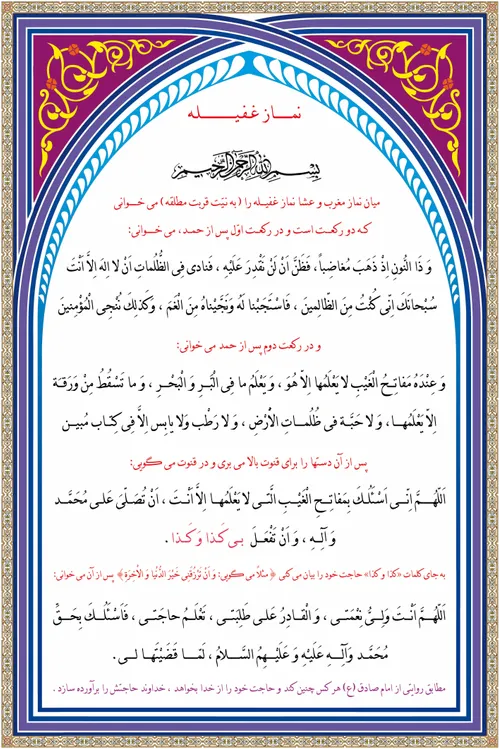 نماز غفیله
بِسْمِ اللهِ الرَّحْمنِ الرَّحیمِ
میان نماز مغرب و عشا نماز غفیله را ( به نیّت قربت مطلقه ) می خوانی
که دو رکعت است و در رکعت اوّل پس از حمد، می خوانی:
وَ ذَا النُّونِ اِذْ ذَهَبَ مُغاضِباً ، فَظَنَّ اَنْ لَنْ نَقْدِرَ عَلَیْهِ ، فَنادی فِی الظُّلُماتِ اَنْ لا اِلهَ اِلاَّ اَنْتَ
سُبْحانَکَ اِنّی کُنْتُ مِنَ الظّالِمینَ ، فَاسْتَجَبْنا لَهُ وَ نَجَّیْناهُ مِنَ الْغَمِّ ، وَ کَذلِکَ نُنْجِی الْمُؤْمِنینَ
و در رکعت دوم پس از حمد می خوانی:
وَ عِنْدَهُ مَفاتِحُ الْغَیْبِ لا یَعْلَمُها اِلاّ هُوَ ، وَ یَعْلَمُ ما فِی الْبَرِّ وَ الْبَحْرِ ، وَ ما تَسْقُطُ مِنْ وَرَقَةٍ
اِلاّ یَعْلَمُها ، وَ لا حَبَّةٍ فی ظُلُماتِ الْأَرْضِ ، وَ لا رَطْبٍ وَلا یابِسٍ اِلاَّ فی کِتابٍ مُبینٍ
پس از آن دستها را برای قنوت بالا می بری و در قنوت می گویی:
اَللّهُمَّ اِنّی اَسْئَلُکَ بِمَفاتِحِ الْغَیْبِ الَّتی لا یَعْلَمُها اِلاَّ اَنْتَ ، اَنْ تُصَلِّیَ عَلی مُحَمَّدٍ
وَ آلِهِ ، وَ اَنْ تَفْعَلَ بی کَذا وَ کَذا .
به جای کلمات «کذا و کذا» حاجت خود را بیان می کنی ﴿ مثلاً می گویی: وَ اَنْ تَرْزُقَنی خَیْرَ الدُّنْیا وَ الْآخِرَةِ ﴾ پس از آن می خوانی:
اَللّهُمَّ اَنْتَ وَلِیُّ نِعْمَتی ، وَ الْقادِرُ عَلی طَلِبَتی ، تَعْلَمُ حاجَتی ، فَاَسْئَلُکَ بِحَقِّ
مُحَمَّدٍ وَ آلِهِ عَلَیْهِ وَ عَلَیْهِمُ السَّلامُ ، لَمّا قَضَیْتَها لی .
مطابق روایتی از امام صادق (ع) هر کس چنین کند و حاجت خود را از خدا بخواهد ، خداوند حاجتش را برآورده سازد .